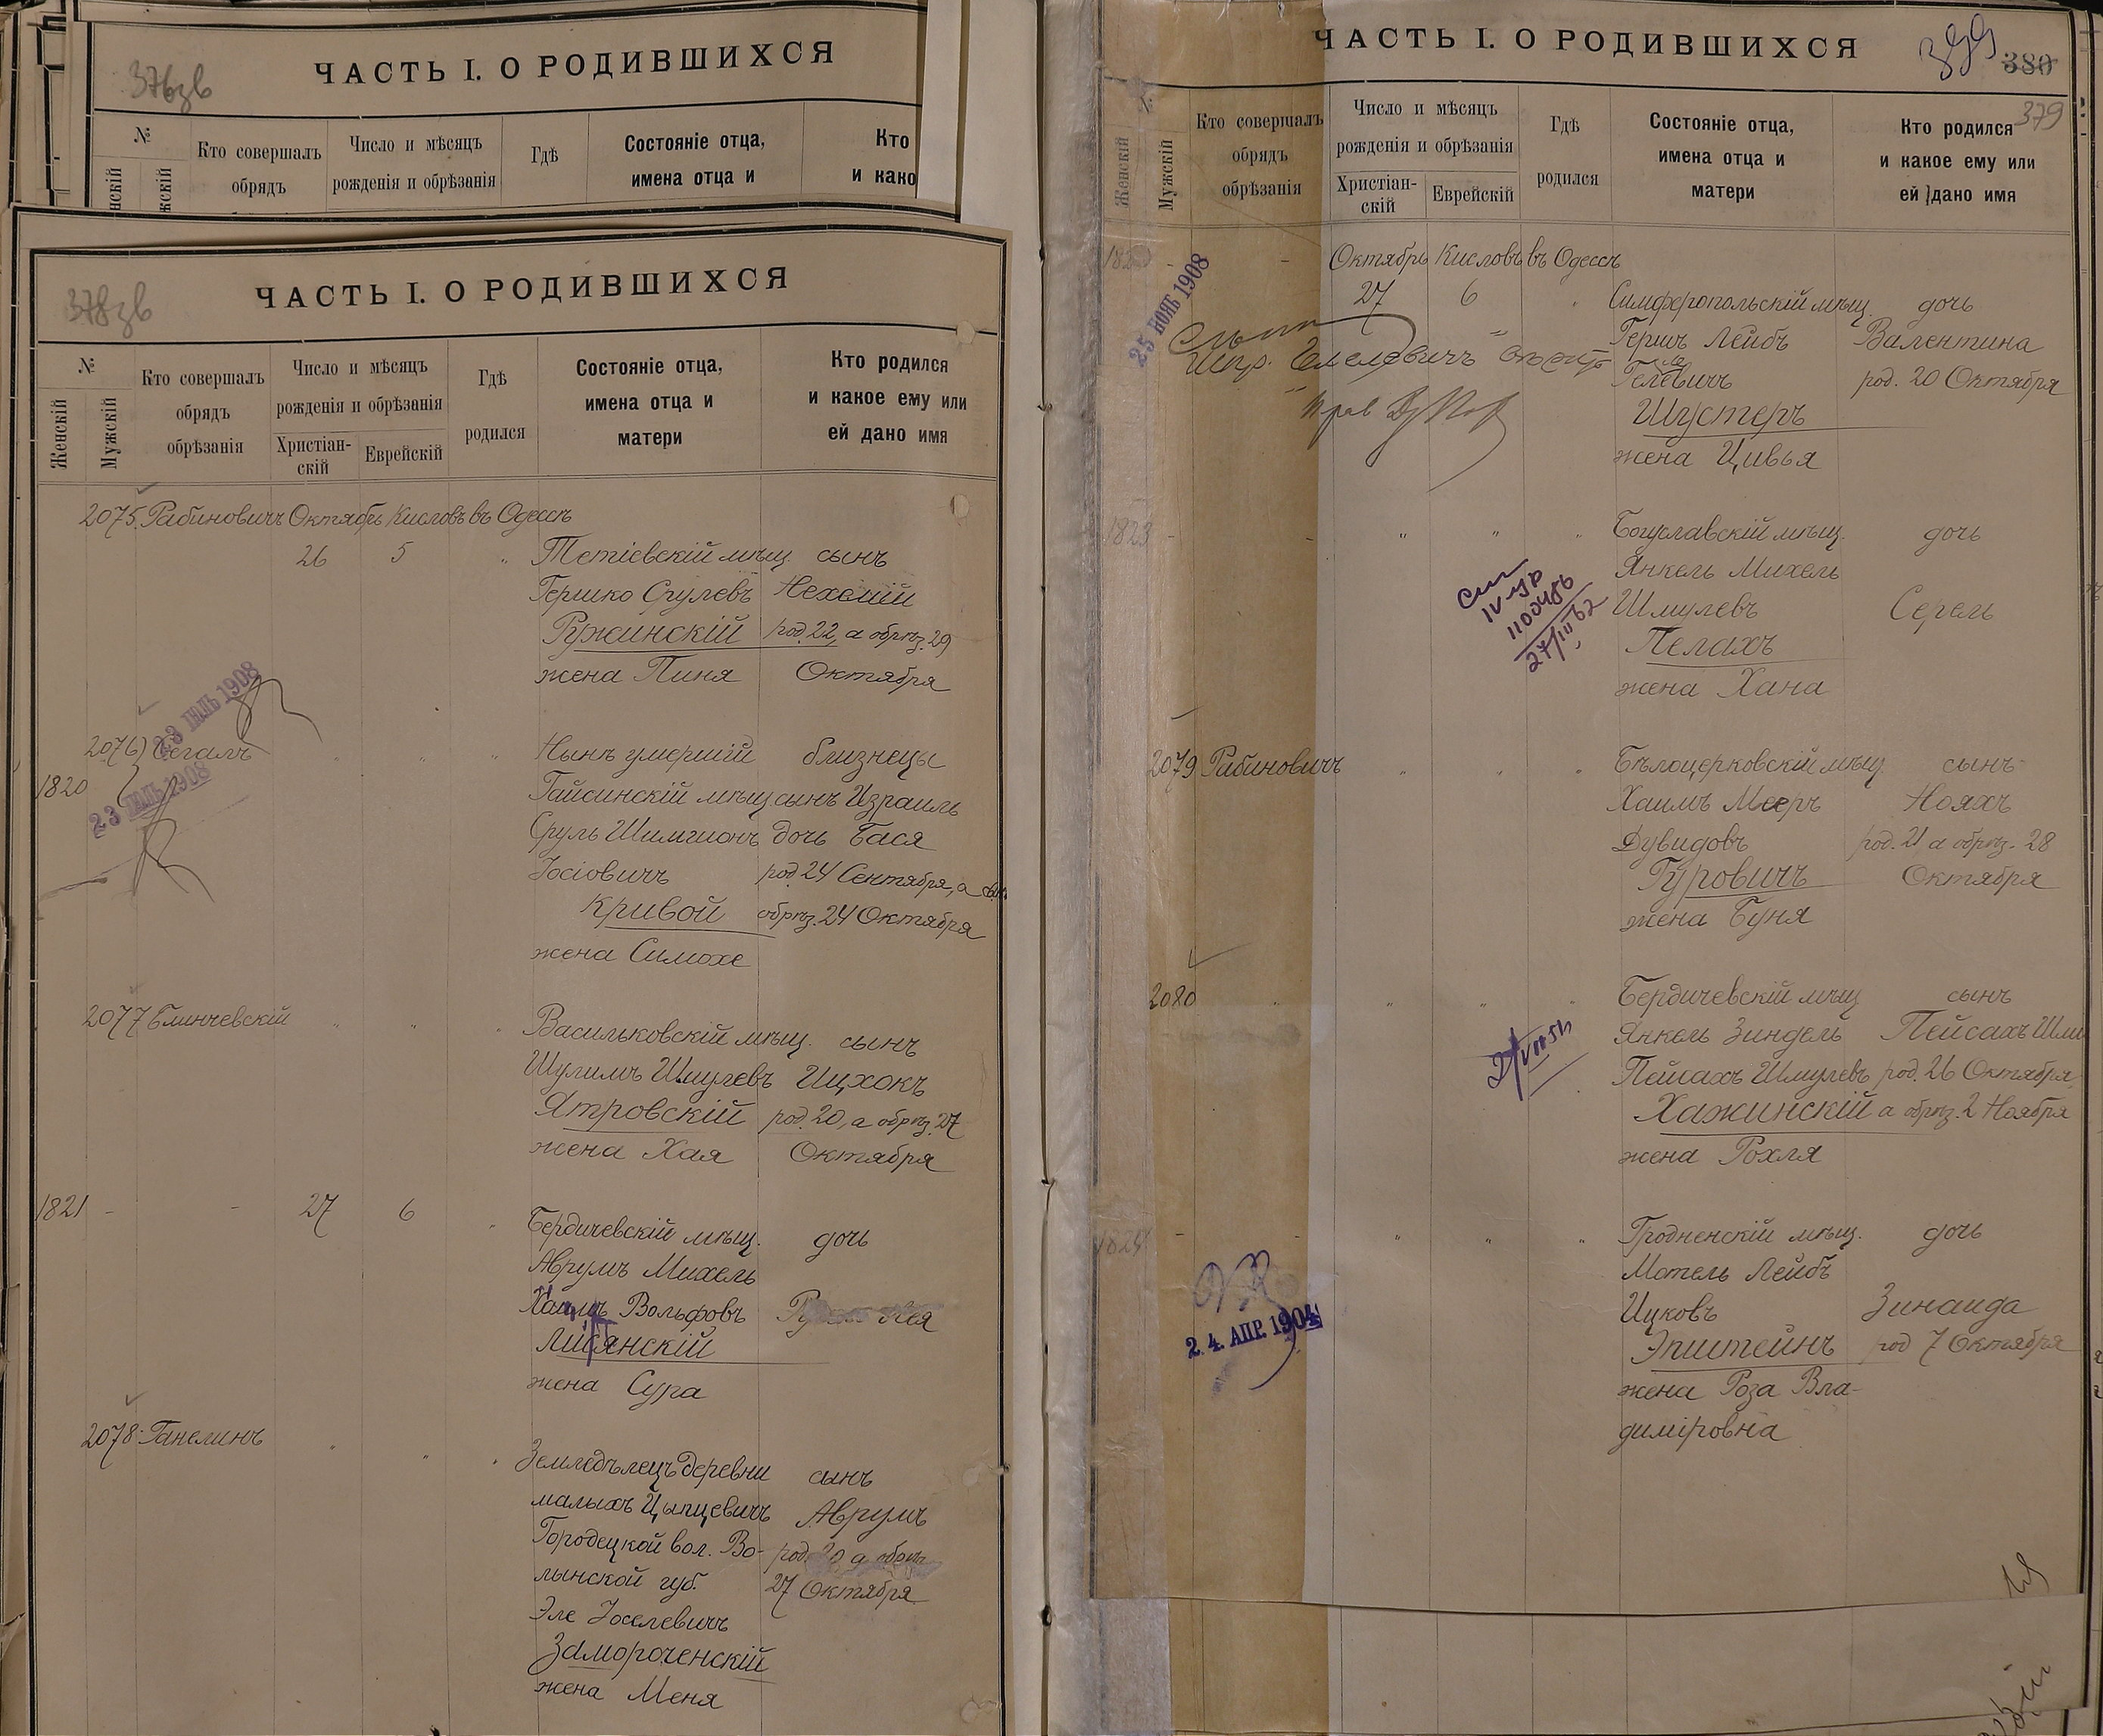 376зв
ЧАСТЬ I. О РОДИВШИХСЯ
№
Кто совершалъ
обрядъ
Число и мѣсяцъ
рожденія и обрѣзанія
Гдѣ
Состояніе отца,
имена отца и
Кто
и како
378зв
ЧАСТЬ I. О РОДИВШИХСЯ
№
Женскій
Мужскій
Кто совершалъ
обрядъ
обрѣзанія
Число и мѣсяцъ
рожденія и обрѣзанія
Христіан-
скій
Еврейскій
Гдѣ
родился
Состояніе отца,
имена отца и
матери
Кто родился
и какое ему или
ей дано имя
2075. Рабиновичъ Октябрь Кисловъ въ Одессѣ
26 5 " Тетіевскій мѣщ. сынъ
Гершко Срулевъ Нехемій
Ружинскій род. 22, а обрѣз. 29
жена Пиня Октября
23 ІЮЛЬ 1908
2076) Сегалъ " " " Нынѣ умершій близнецы
1820
23 ІЮЛЬ 1908
Гайсинскій мѣщ. сынъ Израиль
Сруль Шимшонъ дочь Бася
Іосіовичъ род. 24 Сентября, а
Кривой обрѣз. 24 Октября
жена Симохе
2077 Блинчевскій " " " Васильковскій мѣщ. сынъ
Шулимъ Шмулевъ Ицхокъ
Ятровскій род. 20, а обрѣз. 27
жена Хая Октября
1821 - - 27 6 " Бердичевскій мѣщ. дочь
Аврумъ Михель
Хаимъ Вольфовъ
Лисянскій
жена Сура
2078. Ганелинъ " " " Земледѣлецъ деревни сынъ
малыхъ Цыпцевичъ Аврумъ
Городецкой вол. Во- род. 20 а обрѣз.
лынской губ. 27 Октября
Эле Іоселевичъ
Замороченскій
жена Меня
ЧАСТЬ I. О РОДИВШИХСЯ
399
380
379
№
Женскій
Мужскій
Кто совершалъ
обрядъ
обрѣзанія
Число и мѣсяцъ
рожденія и обрѣзанія
Христіан-
скій
Еврейскій
Гдѣ
родился
Состояніе отца,
имена отца и
матери
Кто родился
и какое ему или
ей дано имя
- - Октябрь Кисловъ въ Одессѣ
27 6 " Симферопольскій мѣщ. дочь
25 НОЯБ 1908
Гершъ Лейбъ Валентина
Гелевичъ род. 20 Октября
Шустеръ
жена Цивья
1823 - - " " " Богуславскій мѣщ. дочь
Янкель Михель
Шмулевъ Серель
Пелахъ
жена Хана
1100486
27/III 62
2079 Рабиновичъ " " " Бѣлоцерковскій мѣщ. сынъ
Хаимъ Мееръ Нояхъ
Дувидовъ род. 21 а обрѣз. 28
Гуровичъ Октября
жена Буня
2080 " " " " Бердичевскій мѣщ. сынъ
Янкель Зиндель Пейсахъ
Пейсахъ Шмулевъ род. 26 Октября,
Хажинскій а обрѣз. 2 Ноября
жена Рохля
1824 - - " " " Гродненскій мѣщ. дочь
Мотель Лейбъ
Ицковъ Зинаида
24. АПР. 1904
Эпштейнъ род 7 Октября
жена Роза Вла-
диміровна